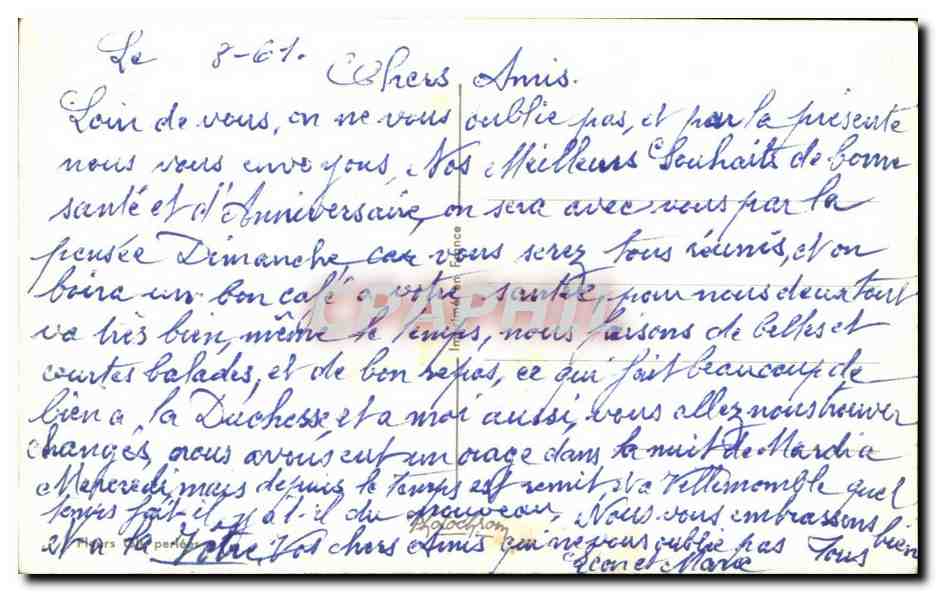 Le 8-61.
Chers Amis.
Loin de vous, on ne vous oublie pas, et par la présente
nous vous envoyons, Nos Meilleurs Souhaits de bonne
santé et d'Anniversaire, on sera avec vous par la
pensée Dimanche, car vous serez tous réunis, et on
boira un bon café a votre santée, pour nous deux tout
va très bien, même le temps, nous faisons de belles et
courtes balades, et de bon repos, ce qui fait beaucoup de
bien a la Duchesse, et a moi aussi, vous allez nous trouver
changés, nous avons eut un orage dans la nuit de Mardi a
Mercredi, mais depuis le temps est remit, a Villemomble quel
temps fait-il, y a t-il du nouveau, Nous vous embrassons bien
et a la Vos chers Amis qui ne vous oublie pas Tous
Léon et Marie
Photochrom
Imprimé en France
Fleurs perlées
CPAPHIL